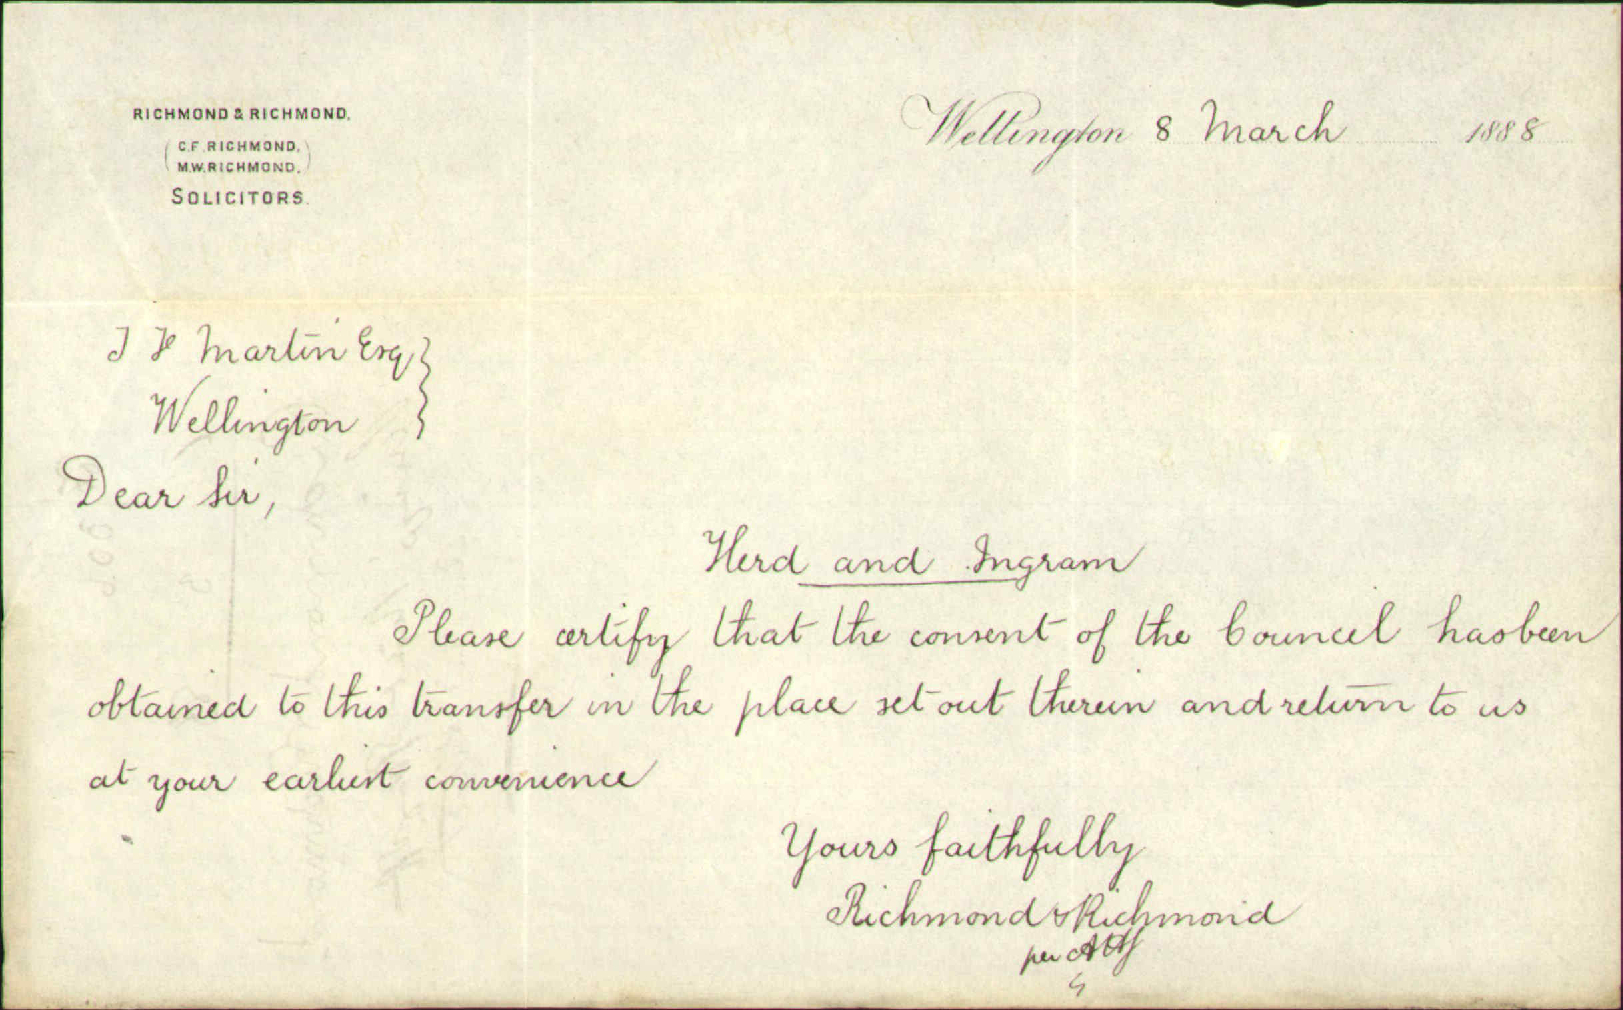 RICHMOND & RICHMOND,
C.F. RICHMOND,
M.W. RICHMOND,
SOLICITORS.
Wellington 8 March 1888
J F Martin Esq
Wellington
Dear Sir,
Herd and Ingram
Please certify that the consent of the Council has been
obtained to this transfer in the place set out therein and return to us
at your earliest convenience
Yours faithfully
Richmond & Richmond
per